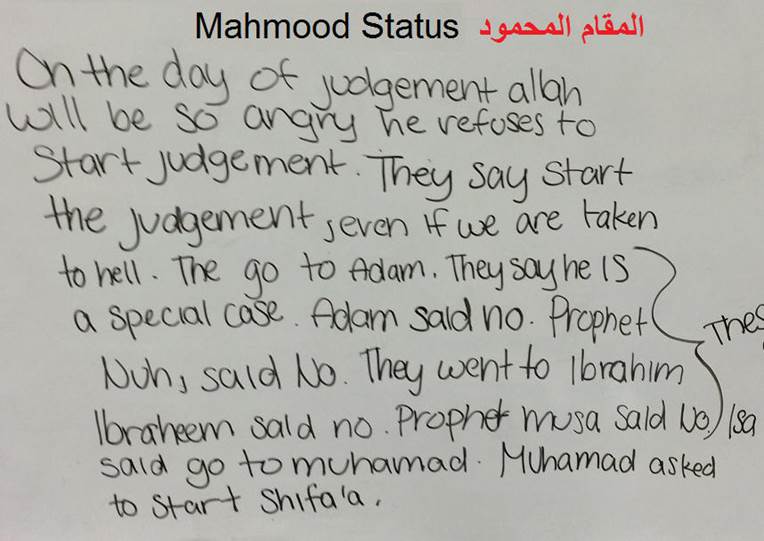 Mahmood Status المقام المحمود
On the day of judgement allah
will be so angry he refuses to
Start judgement. They say start
the judgement, even if we are taken
to hell. The go to Adam. They say he is
a special case. Adam said no. Prophet
Nuh, said No. They went to Ibrahim
Ibraheem said no. Prophet musa said No, Isa
said go to muhamad. Muhamad asked
to start Shifa'a.